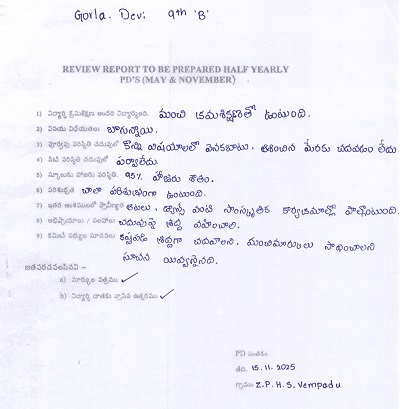 Gorla. Devi 9th 'B'
REVIEW REPORT TO BE PREPARED HALF YEARLY
PD'S (MAY & NOVEMBER)
1) విద్యార్థి క్రమశిక్షణ మంచి క్రమశిక్షణతో ఉంటుంది.
2) వినయ విధేయతలు బాగున్నాయి.
3) పూర్వపు పరిస్థితి చదువులో కొన్ని విషయాలలో వెనకబాటు, ఆశించిన మేరకు చదవడం లేదు
4) నేటి పరిస్థితి చదువులో పర్వాలేదు.
5) స్కూలుకు హాజరు పరిస్థితి. 95% హాజరు శాతం.
6) పరిశుభ్రత చాలా పరిశుభ్రంగా ఉంటుంది.
7) ఇతర అంశములలో ఆటలు, డ్యాన్స్ వంటి సాంస్కృతిక కార్యక్రమాల్లో పాల్గొంటుంది.
8) అభిప్రాయాలు / సలహా చదువుపై శ్రద్ధ వహించాలి.
9) కమిటీ సభ్యుల సూచనలు కష్టపడి శ్రద్ధగా చదవాలని, మంచిమార్కులు సాధించాలని
సూచన ఇవ్వడమైనది.
జతపరచవలసినవి -
a) మార్కుల పత్రము ✓
b) విద్యార్థి దాతకు వ్రాసిన ఉత్తరము ✓
PD సంతకం
తేది. 15.11.2025
గ్రామం Z.P.H.S. Vempadu